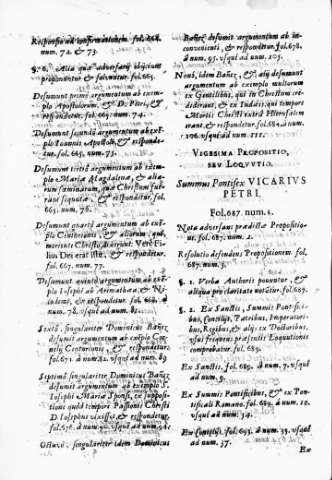 Responsio ad confirmationem. fol. 664.
num. 72. & 73.
§. 6. Alia quæ adversarij obijciunt
proponuntur & solvuntur. fol. 665.
Desumunt primò argumentum ab exem-
plo Apostolorum, & D. Petri, &
respondetur. fol. 665. num. 74.
Desumunt secundò argumentum ab exẽ-
plo Ioannis Apostoli, & responde-
tur. fol. 665. num. 75.
Desumunt tertiò argumentum ab exem-
plo Mariæ Magdalenæ, & alia-
rum fœminarum, quæ Christum fue-
rant sequutæ, & respondetur. fol.
665. num. 76.
Desumunt quartò argumentum ab exem-
plo Centurionis, & aliorum, qui,
moriente Christo, dixerunt: Verè Fi-
lius Dei erat iste, & respondetur.
fol. 667. num. 77.
Desumunt quintò argumentum ab exem-
plo Iosephi ab Arimathæa, & Ni-
codemi, & respondetur. fol.
num. 78. usque ad num. 81.
Sextò, singulariter Dominicus Bañez
desumit argumentum ab exẽplo Cor-
nelij Centurionis, & respondetur.
fol. 671. à num. 82. usque ad num. 89
Septimò singulariter Dominicus Bañez
desumit argumentum ab exemplo D.
Iosephi Mariæ Sponsi, ex supposi-
tione quòd tempore Passionis Christi
D. Iosephus vixisset, & respondetur,
fol. 676. à num. 90. usque ad num.
Octavò, singulariter idem Dominicus
Bañez desumit argumentum ab in-
convenienti, & respondetur. fol. 678.
à num. 95. usque ad num. 105.
Nonò, idem Bañez, & alij desumunt
argumentum ab exemplo multorum
ex Gentilibus, qui in Christum cre-
diderant, & ex Iudæis, qui tempore
Mortis Christi extra Hierusalem
erant, & respondetur. fol. 682. à num.
106. usque ad num. 111.
VIGESIMA PROPOSITIO,
SEU LOQVVTIO.
Summus Pontifex VICARIUS
PETRI.
Fol. 687. num. 1.
Nota adversari prædictæ Propositio-
ni. fol. 687. num. 2.
Resolutio defendens Propositionem. fol.
687. num. 3.
§. 1. Verba Authoris ponuntur, &
aliqua pro claritate notantur. fol. 689.
§. 2. Ex Sanctis, Summis Pontifici-
bus, Concilijs, Patribus, Imperatori-
bus, Regibus, & alijs ex Doctoribus,
usus frequens præsentis Loquutionis
comprobatur. fol. 689.
Ex Sanctis. fol. 689. à num. 7. usque
ad num. 9.
Ex Summis Pontificibus, & ex Pon-
tificali Romano. fol. 690. à num. 12.
usque ad num. 34.
Ex Concilijs. fol. 695. à num. 35. usque
ad num. 37.
Ex